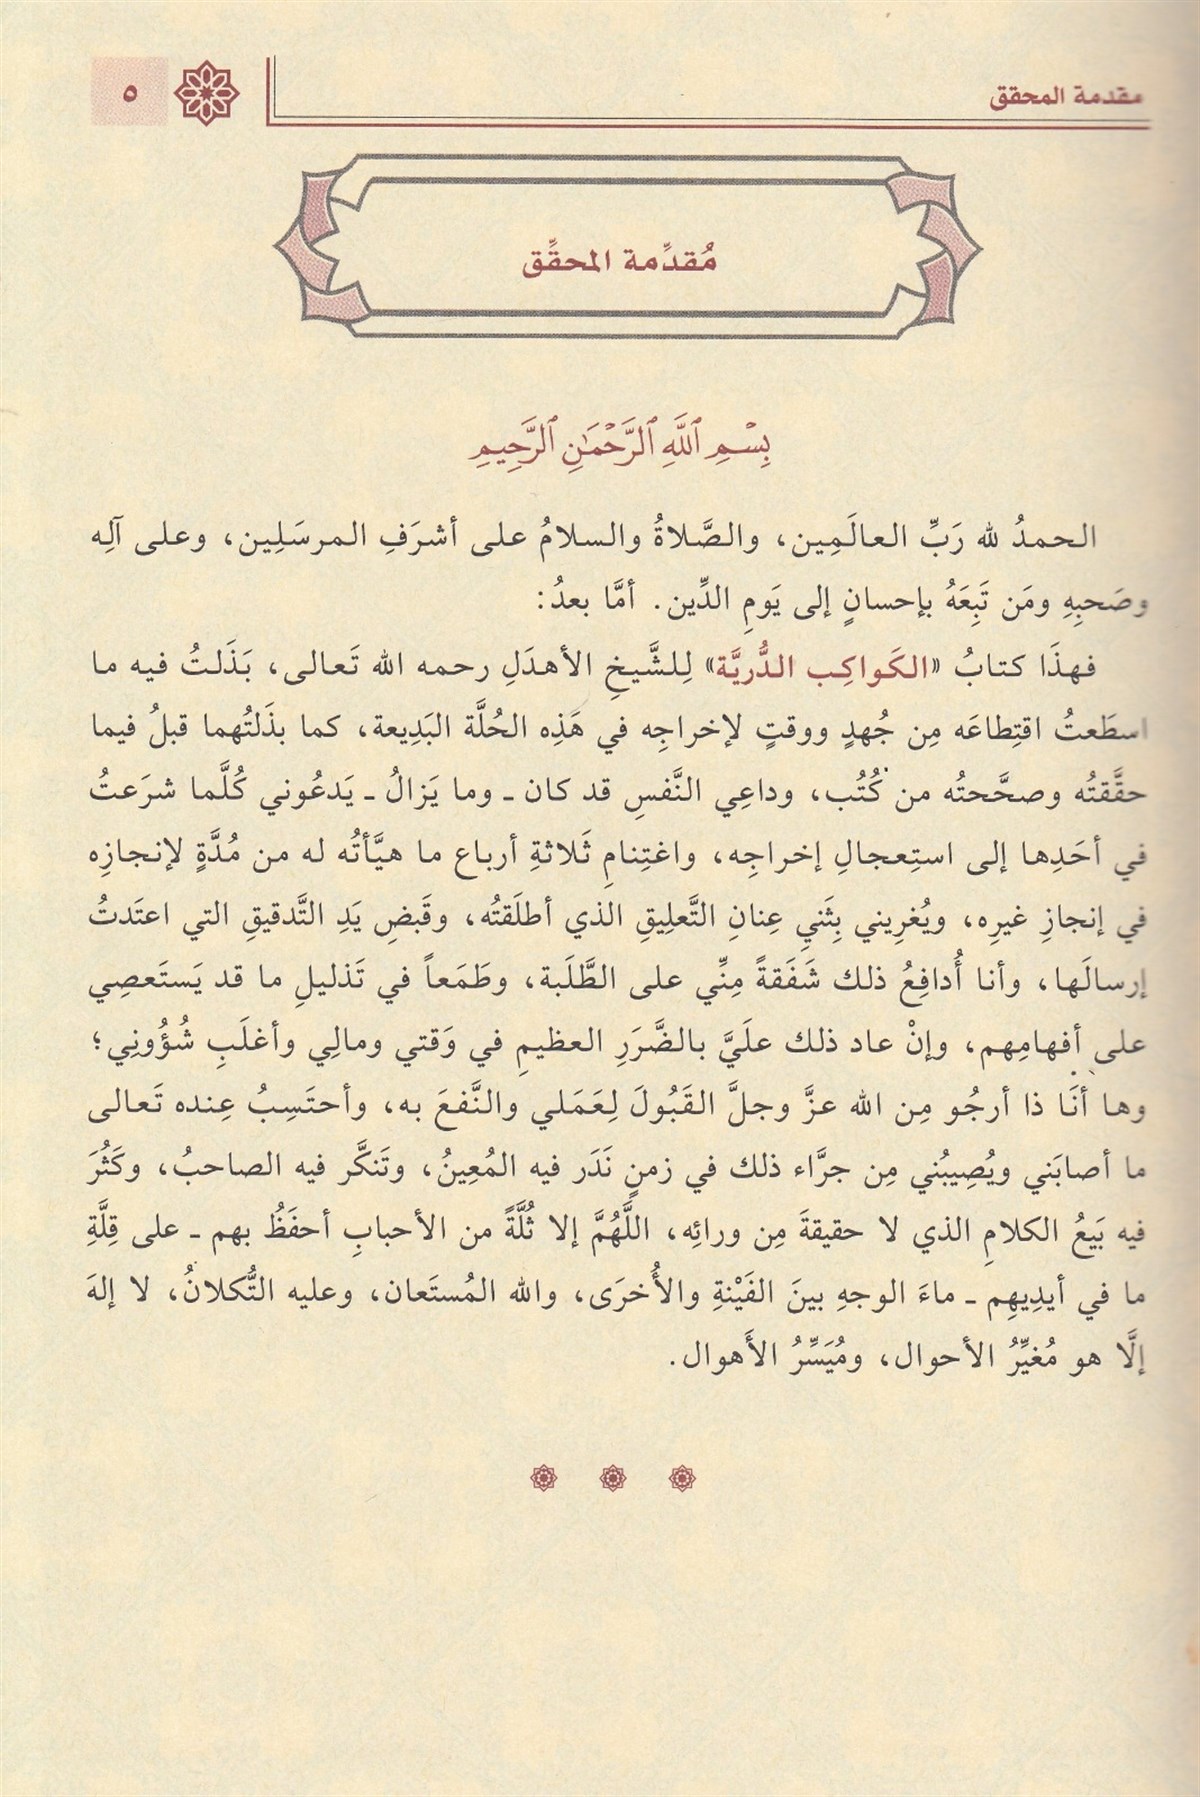 مقدمة المحقق
٥
مُقدِّمة المحقِّق
بِسْمِ ٱللَّهِ ٱلرَّحْمَٰنِ ٱلرَّحِيمِ
الحمدُ لله رَبِّ العالَمِين، والصَّلاةُ والسلامُ على أشرَفِ المرسَلِين، وعلى آلِه
وصَحبِهِ ومَن تَبِعَهُ بإحسانٍ إلى يَومِ الدِّين. أمَّا بعدُ:
فهذَا كتابُ «الكَواكِب الدُّريَّة» لِلشَّيخِ الأهدَلِ رحمه الله تَعالى، بَذَلتُ فيه ما
اسطَعتُ اقتِطاعَه مِن جُهدٍ ووقتٍ لإخراجِه في هَذِه الحُلَّة البَدِيعة، كما بذَلتُهما قبلُ فيما
حقَّقتُه وصحَّحتُه من كُتُب، وداعِي النَّفسِ قد كان ـ وما يَزالُ ـ يَدعُوني كُلَّما شرَعتُ
في أحَدِها إلى استِعجالِ إخراجِه، واغتِنامِ ثَلاثةِ أرباع ما هيَّأتُه له من مُدَّةٍ لإنجازِه
في إنجازِ غيرِه، ويُغرِيني بِثَنيِ عِنانِ التَّعلِيقِ الذي أطلَقتُه، وقَبضِ يَدِ التَّدقيقِ التي اعتَدتُ
إرسالَها، وأنا أُدافِعُ ذلك شَفَقةً مِنِّي على الطَّلَبة، وطَمَعاً في تَذليلِ ما قد يَستَعصِي
على أفهامِهم، وإنْ عاد ذلك علَيَّ بالضَّرَرِ العظيمِ في وَقتي ومالِي وأغلَبِ شُؤُونِي؛
وها أنَا ذا أرجُو مِن الله عزَّ وجلَّ القَبُولَ لِعَمَلي والنَّفعَ به، وأحتَسِبُ عِنده تَعالى
ما أصابَني ويُصِيبُني مِن جرَّاء ذلك في زمنٍ نَدَر فيه المُعِينُ، وتَنكَّر فيه الصاحبُ، وكَثُرَ
فيه بَيعُ الكلامِ الذي لا حقيقةَ مِن ورائِه، اللَّهُمَّ إلا ثُلَّةً من الأحبابِ أحفَظُ بهم ـ على قِلَّةِ
ما في أيدِيهِم ـ ماءَ الوجهِ بينَ الفَيْنةِ والأُخرَى، والله المُستَعان، وعليه التُّكلانُ، لا إلهَ
إلَّا هو مُغيِّرُ الأحوال، ومُيَسِّرُ الأَهوال.